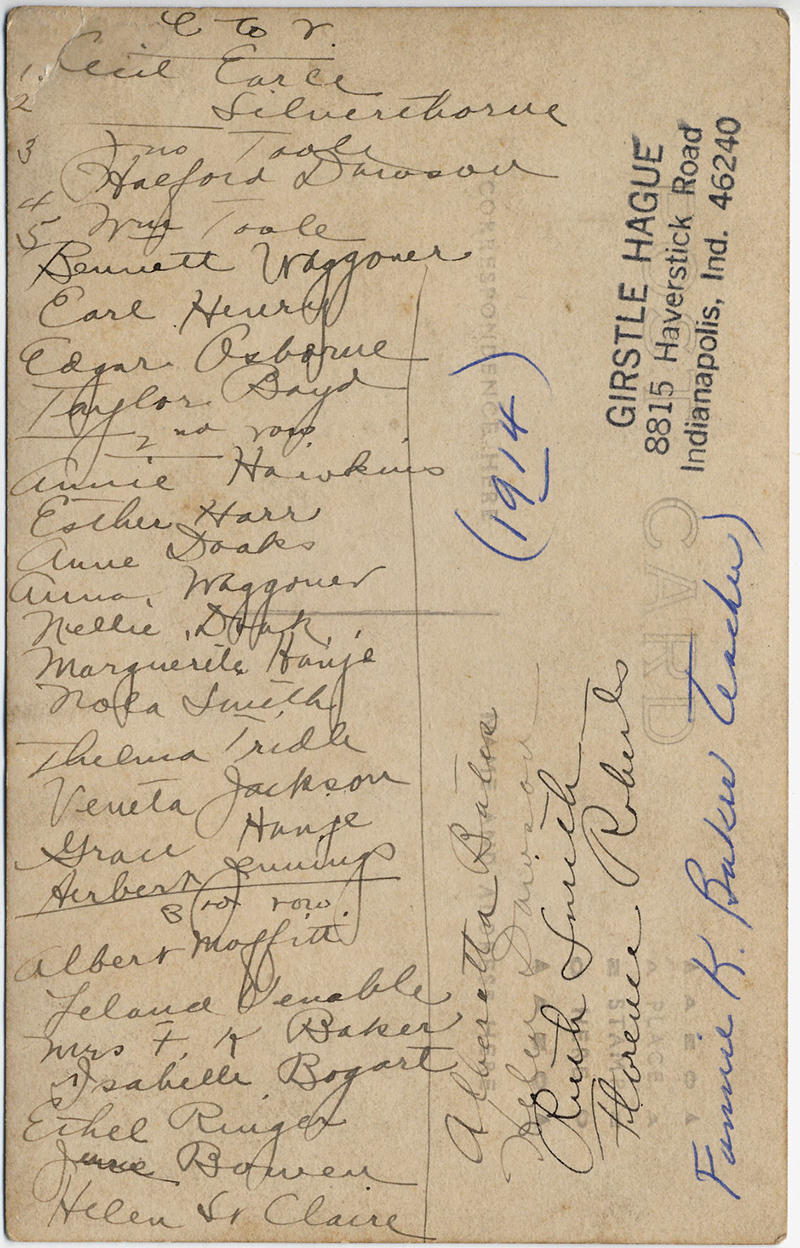 C to r.
1. Cecil Earce
2 Silverthorne
3 Jno Toole
Halford Dawson
4
5 Wm Toole
Bennett Waggoner
Earl Henry
Edgar Osborne
Taylor Boyd
2nd row
Annie Hawkins
Esther Harr
Anne Doaks
Anna Waggoner
Nellie Doak
Marguerite Hanje
Nola Smith
Thelma Tridle
Veneta Jackson
Grace Hanje
Herbert Jennings
3 row
Albert Moffitt
Leland Venable
Mrs F. K Baker
Isabelle Bogart
Ethel Ringer
June Bowen
Helen St Claire
Alberatta Baker
Helen Dawson
Ruth Smith
Florence Roberts
(1914)
Fannie K. Baker teacher)
GIRSTLE HAGUE
8815 Haverstick Road
Indianapolis, Ind. 46240
CORRESPONDENCE HERE
CARD